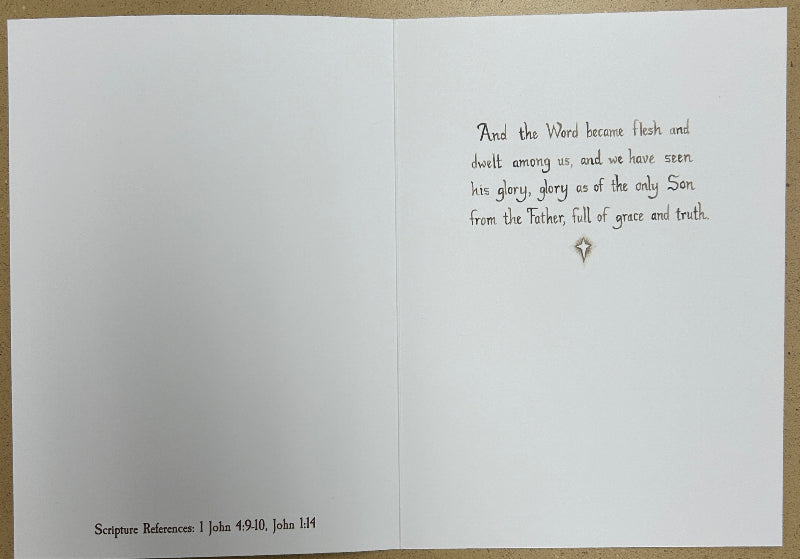 And the Word became flesh and
dwelt among us, and we have seen
his glory, glory as of the only Son
from the Father, full of grace and truth.
Scripture References: 1 John 4:9-10, John 1:14